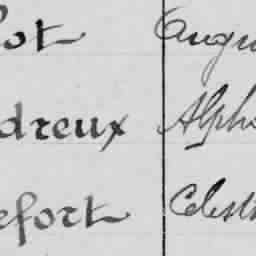 ot Augu
dreux Alpho
efort Celest